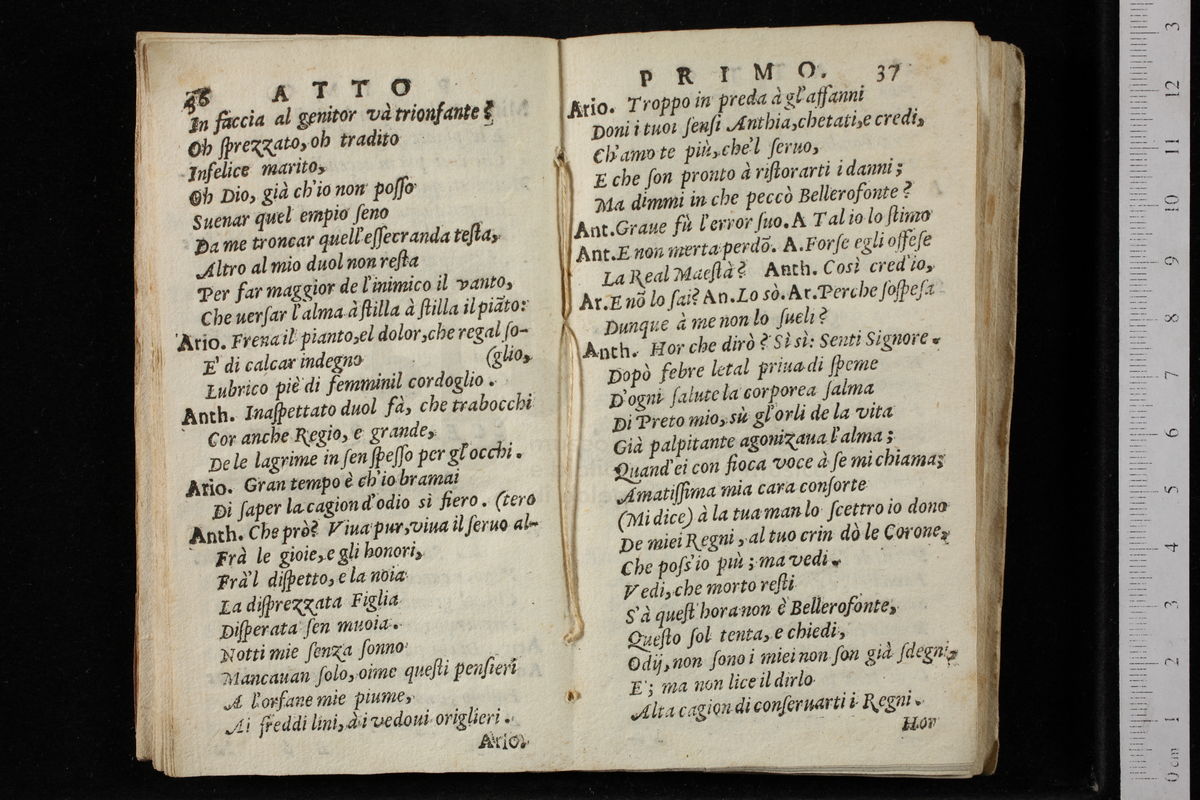 36 ATTO
In faccia al genitor và trionfante?
Oh ſprezzato, oh tradito
Infelice marito,
Oh Dio, già ch'io non poſſo
Suenar quel empio ſeno
Da me troncar quell'eſſecranda teſta,
Altro al mio duol non reſta
Per far maggior de l'inimico il vanto,
Che uerſar l'alma à ſtilla à ſtilla il piãto:
Ario. Frena il pianto, el dolor, che regal ſo-
E' di calcar indegno (glio,
Lubrico piè di femminil cordoglio.
Anth. Inaſpettato duol fà, che trabocchi
Cor anche Regio, e grande,
De le lagrime in ſen ſpeſſo per gl'occhi.
Ario. Gran tempo è ch'io bramai
Di ſaper la cagion d'odio sì fiero. (tero
Anth. Che prò? Viua pur, viua il ſeruo al-
Frà le gioie, e gli honori,
Frà'l diſpetto, e la noia
La diſprezzata Figlia
Diſperata ſen muoia.
Notti mie ſenza ſonno
Mancauan ſolo, oime queſti penſieri
A l'orfane mie piume,
Ai freddi lini, a i vedoui origlieri.
Ario.
PRIMO. 37
Ario. Troppo in preda à gl'affanni
Doni i tuoi ſenſi Anthia, chetati, e credi,
Ch'amo te più, che'l ſeruo,
E che ſon pronto à riſtorarti i danni;
Ma dimmi in che peccò Bellerofonte?
Ant. Graue fù l'error ſuo. A Tal io lo ſtimo
Ant. E non merta perdõ. A. Forſe egli offeſe
La Real Maeſtà? Anth. Così cred'io,
Ar. E nõ lo ſai? An. Lo sò. Ar. Perche ſoſpeſa
Dunque à me non lo ſueli?
Anth. Hor che dirò? Sì sì: Senti Signore.
Dopò febre letal priua di ſpeme
D'ogni ſalute la corporea ſalma
Di Preto mio, sù gl'orli de la vita
Già palpitante agonizaua l'alma;
Quand'ei con fioca voce à ſe mi chiama;
Amatiſſima mia cara conſorte
(Mi dice) à la tua man lo ſcettro io dono
De miei Regni, al tuo crin dò le Corone,
Che poſs'io più; ma vedi.
Vedi, che morto reſti
S'à queſt'hora non è Bellerofonte,
Queſto ſol tenta, e chiedi,
Odij, non ſono i miei non ſon già ſdegni
E'; ma non lice il dirlo
Alta cagion di conſeruarti i Regni.
Hor